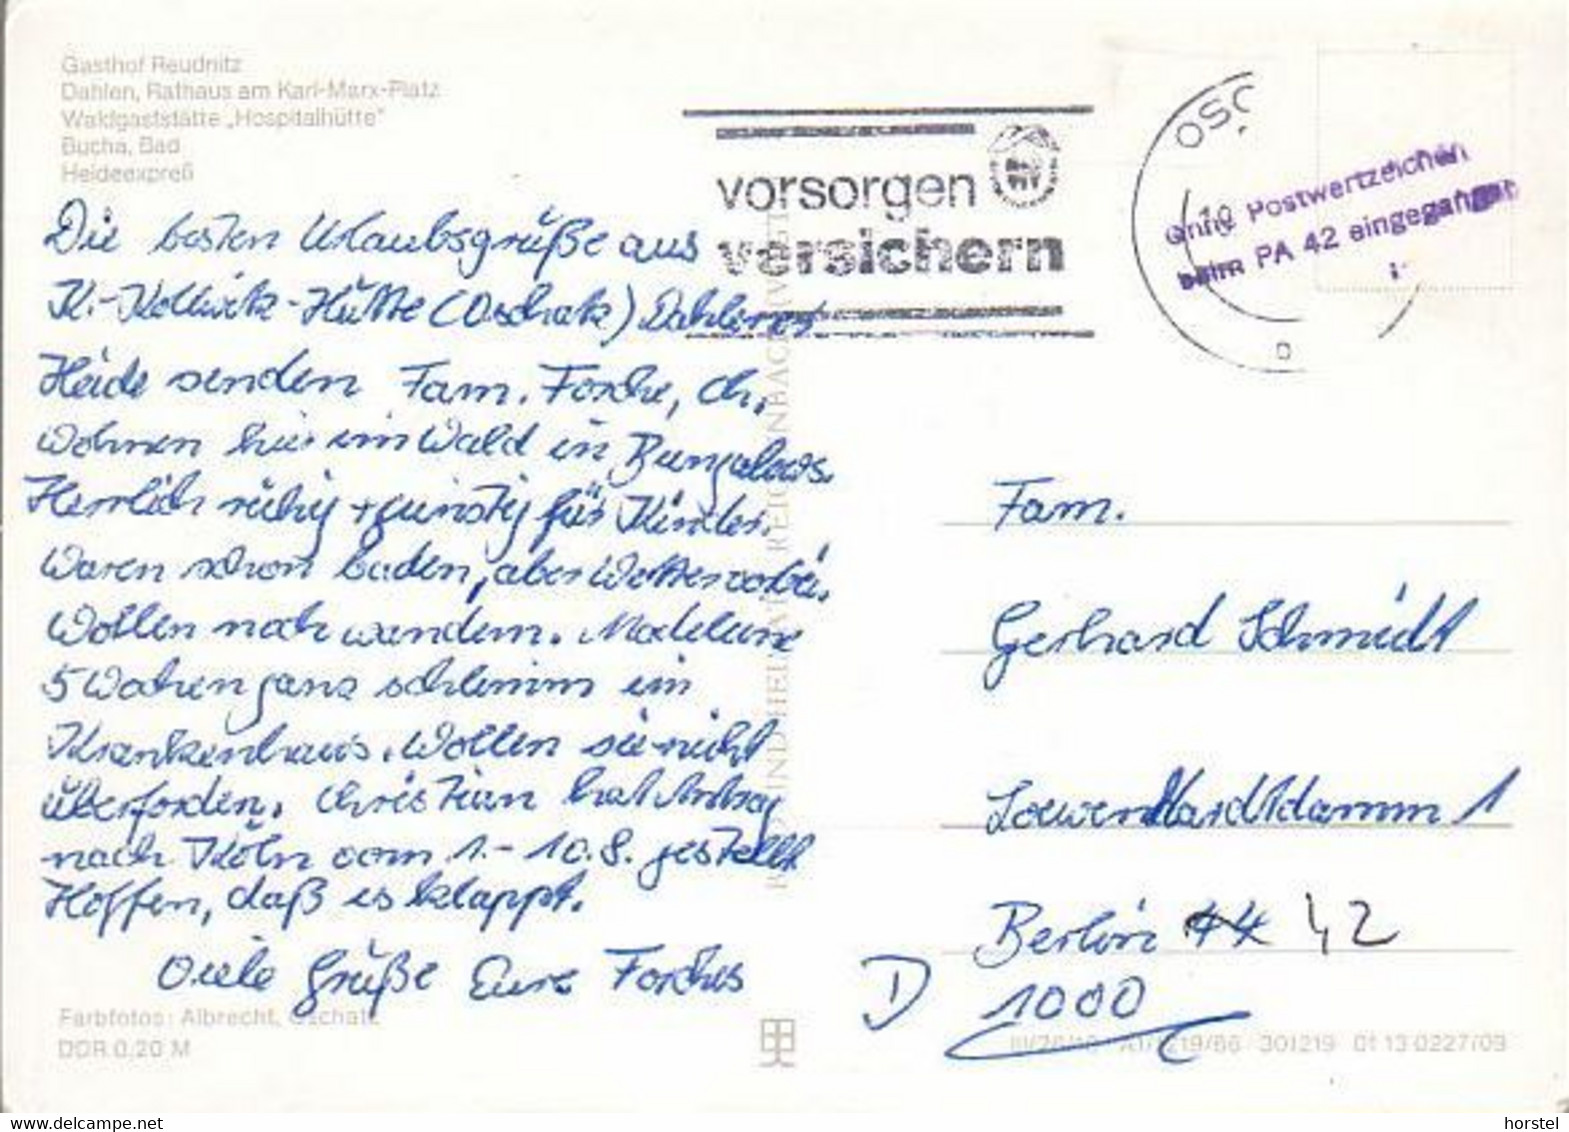 Gasthof Reudnitz
Dahlen, Rathaus am Karl-Marx-Platz
Waldgaststätte „Hospitalhütte"
Bucha, Bad
Heideexpreß
vorsorgen
versichern
OSC
ohne Postwertzeichen
beim PA 42 eingegangen
Die besten Urlaubsgrüße aus
K.-Kollwitz-Hütte (Oschatz) Dahlener
Heide senden Fam. Forche, Ch.
Wohnen hier im Wald in Bungalows.
Herrlich ruhig + günstig für Kinder.
Waren schon baden, aber Wetter vorbei.
Wollen noch wandern. Madeleine
5 Wochen ganz schlimm im
Krankenhaus. Wollen sie nicht
überfordern. Christian hat Antrag
nach Köln vom 1.-10.8. gestellt
Hoffen, daß es klappt.
Viele Grüße Eure Forches
Fam.
Gerhard Schmidt
Loewenhardtdamm 1
Berlin 44 42
D 1000
Farbfotos: Albrecht, Oschatz
DDR 0,20 M
301219 01 13 0227/09